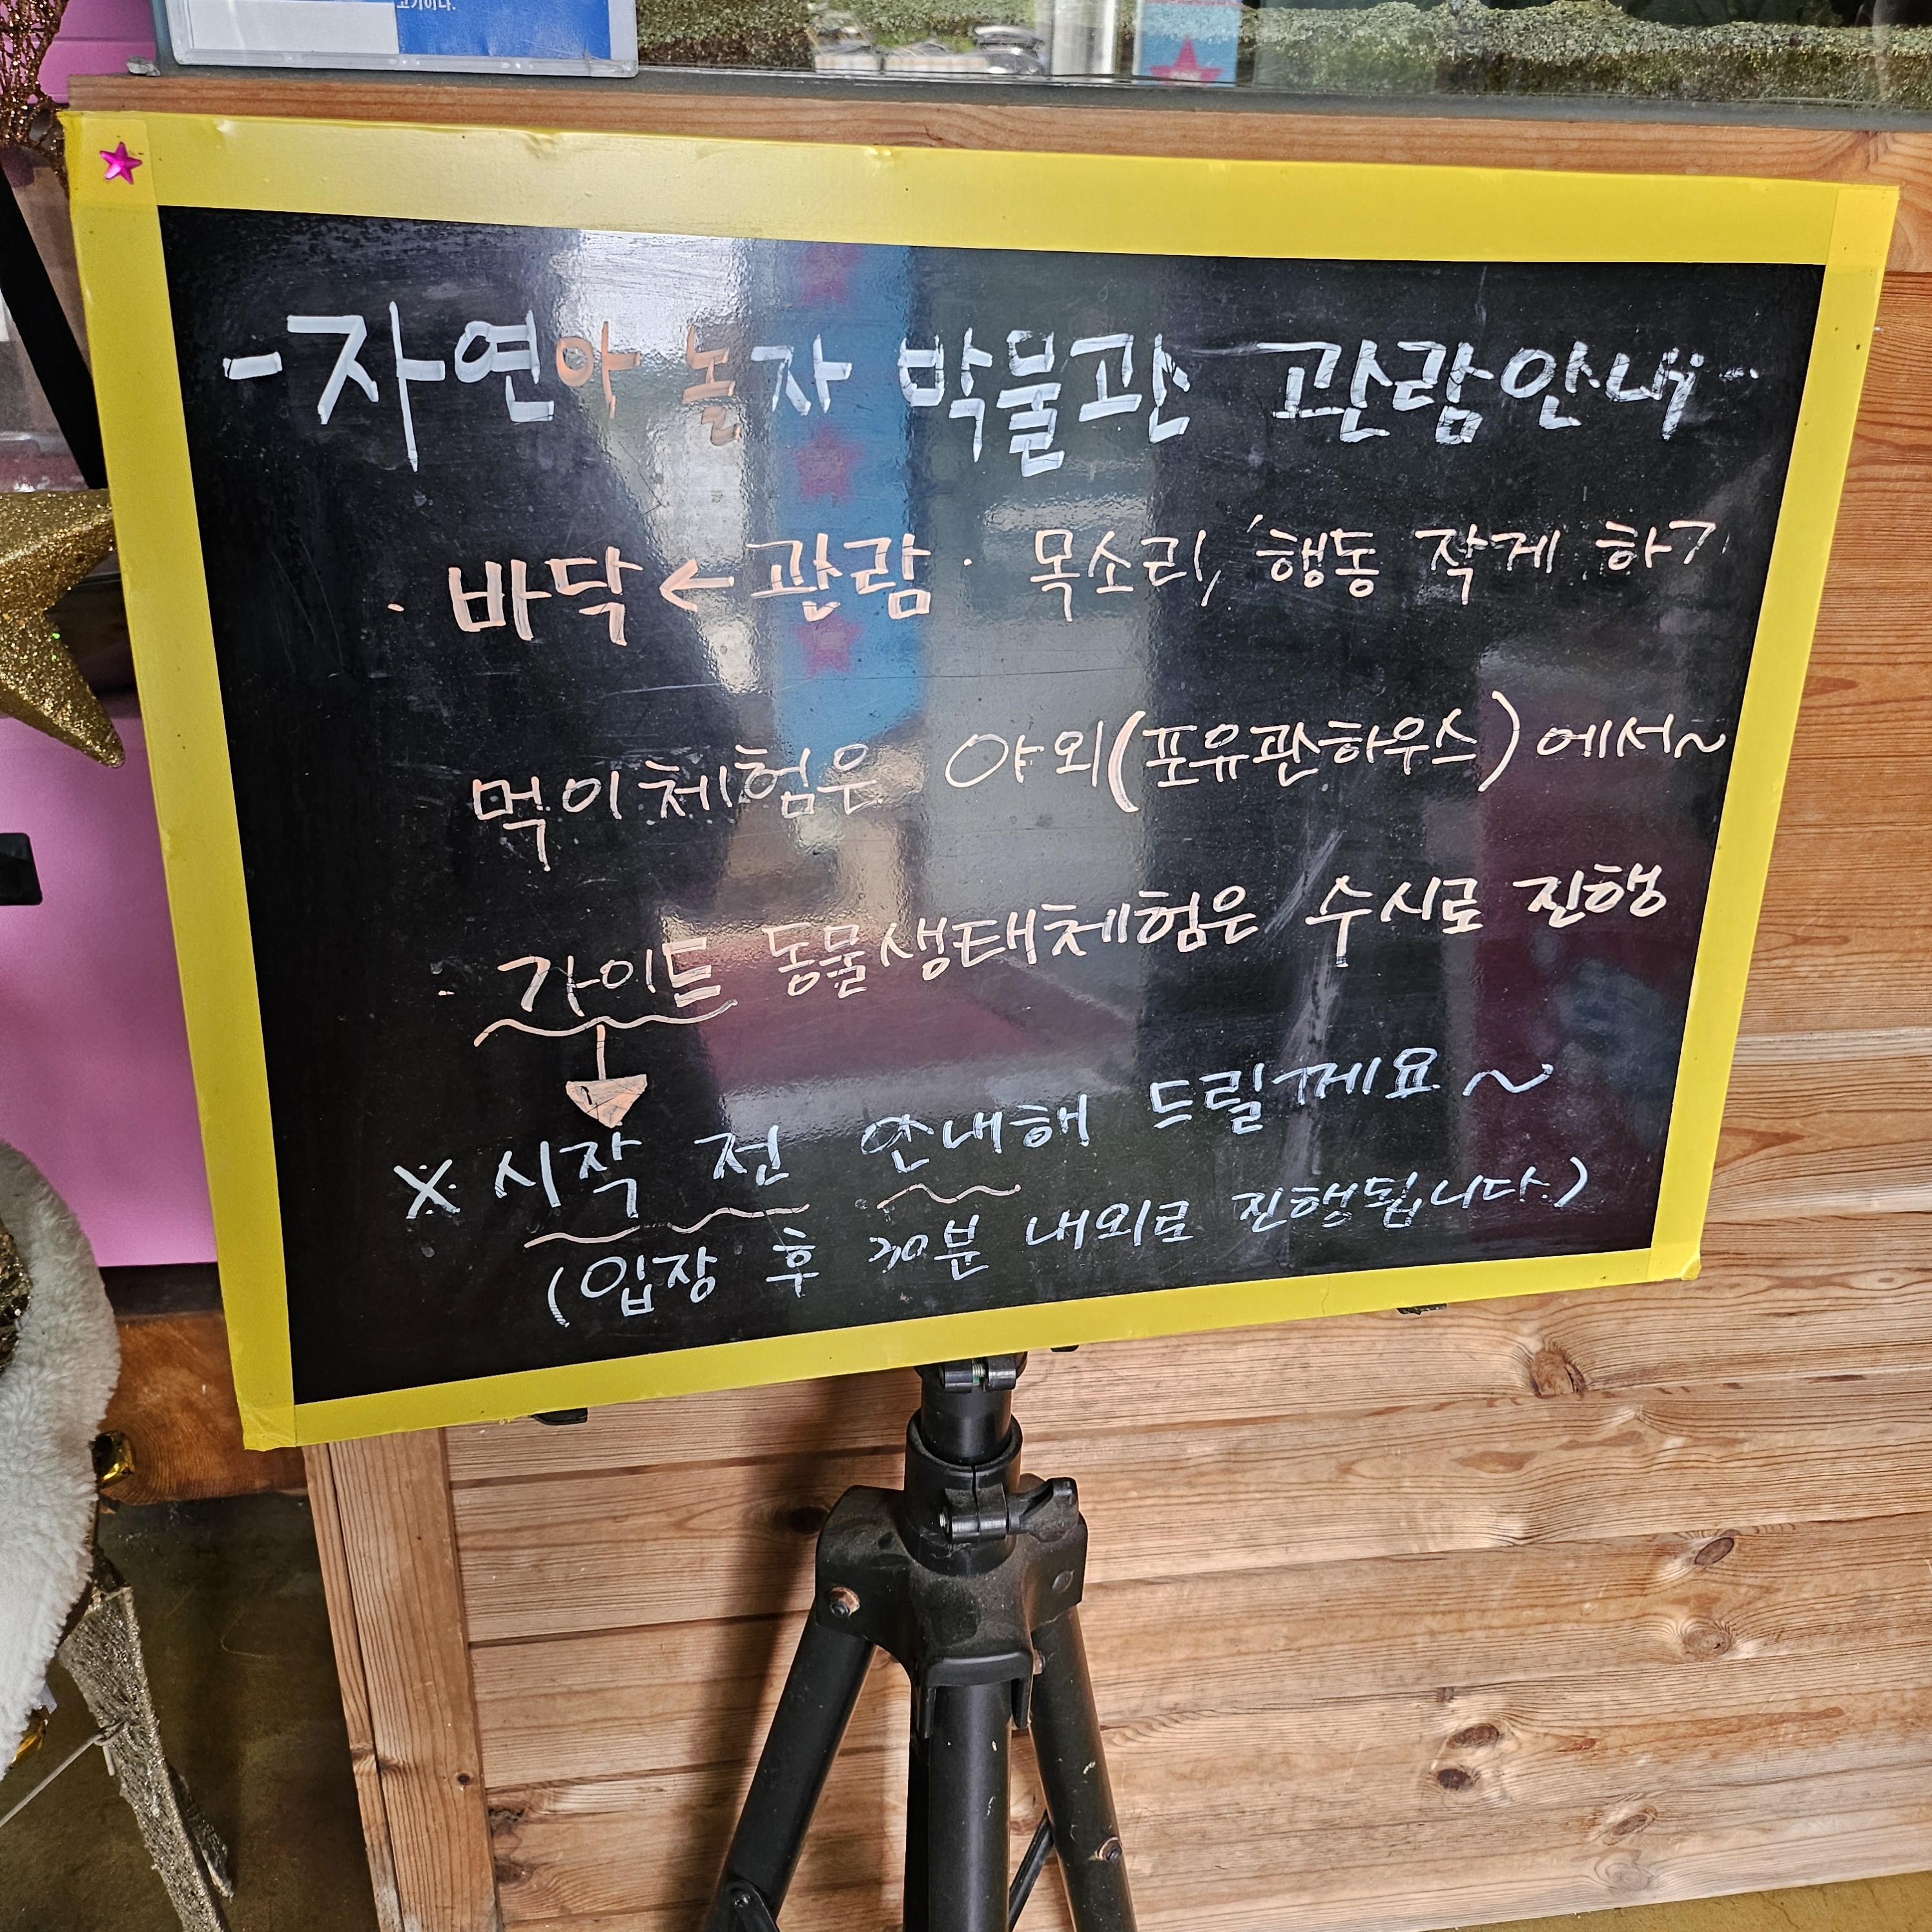 고기이다.
-자연아 놀자 박물관 관람안내-
· 바닥 ← 관람 · 목소리, 행동 작게 하기
먹이체험은 야외(포유관하우스)에서~
· 가이드 동물생태체험은 수시로 진행
※ 시작 전 안내해 드릴께요~
(입장 후 30분 내외로 진행됩니다.)